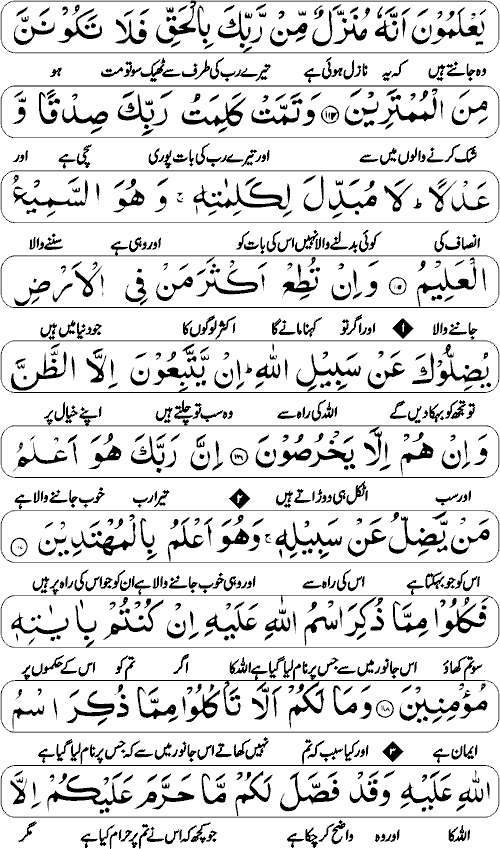 يَعْلَمُوْنَ اَنَّهٗ مُنَزَّلٌ مِّنْ رَّبِّكَ بِالْحَقِّ فَلَا تَكُوْنَنَّ
وہ جانتے ہیں کہ یہ نازل ہوئی ہے تیرے رب کی طرف سے ٹھیک سو تو مت ہو
مِنَ الْمُمْتَرِيْنَ ﴿۱۱۴﴾ وَتَمَّتْ كَلِمَتُ رَبِّكَ صِدْقًا وَّ
شک کرنے والوں میں سے اور تیرے رب کی بات پوری سچی ہے اور
عَدْلًا ؕ لَا مُبَدِّلَ لِكَلِمٰتِهٖ ۚ وَ هُوَ السَّمِيْعُ
انصاف کی کوئی بدلنے والا نہیں اس کی بات کو اور وہی ہے سننے والا
الْعَلِيْمُ وَاِنْ تُطِعْ اَكْثَرَ مَنْ فِى الْاَرْضِ
جاننے والا ۱ اور اگر تو کہنا مانے گا اکثر لوگوں کا جو دنیا میں ہیں
يُضِلُّوْكَ عَنْ سَبِيْلِ اللّٰهِ ؕ اِنْ يَّتَّبِعُوْنَ اِلَّا الظَّنَّ
تو تجھ کو بہکا دیں گے اللہ کی راہ سے وہ سب تو چلتے ہیں اپنے خیال پر
وَاِنْ هُمْ اِلَّا يَخْرُصُوْنَ ﴿۱۱۶﴾ اِنَّ رَبَّكَ هُوَ اَعْلَمُ
اور سب اٹکل ہی دوڑاتے ہیں ۲ تیرا رب خوب جاننے والا ہے
مَنْ يَّضِلُّ عَنْ سَبِيْلِهٖ ۚ وَهُوَ اَعْلَمُ بِالْمُهْتَدِيْنَ ﴿۱۱۷﴾
اس کو جو بہکتا ہے اس کی راہ سے اور وہی خوب جاننے والا ہے ان کو جو اس کی راہ پر ہیں
فَكُلُوْا مِمَّا ذُكِرَ اسْمُ اللّٰهِ عَلَيْهِ اِنْ كُنْتُمْ بِاٰيٰتِهٖ
سو تم کھاؤ اس جانور میں سے جس پر نام لیا گیا ہے اللہ کا اگر تم کو اس کے حکموں پر
مُؤْمِنِيْنَ ﴿۱۱۸﴾ وَمَا لَكُمْ اَلَّا تَاْكُلُوْا مِمَّا ذُكِرَ اسْمُ
ایمان ہے ۳ اور کیا سبب کہ تم نہیں کھاتے اس جانور میں سے کہ جس پر نام لیا گیا ہے
اللّٰهِ عَلَيْهِ وَقَدْ فَصَّلَ لَكُمْ مَّا حَرَّمَ عَلَيْكُمْ اِلَّا
اللہ کا اور وہ واضح کر چکا ہے جو کچھ کہ اس نے تم پر حرام کیا ہے مگر